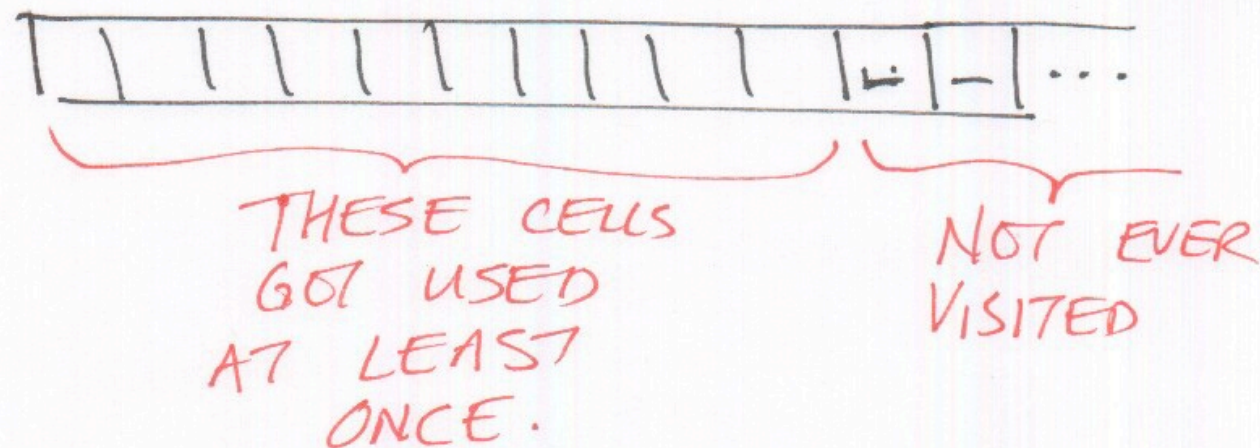 – – ...
THESE CELLS
GOT USED
AT LEAST
ONCE.
NOT EVER
VISITED